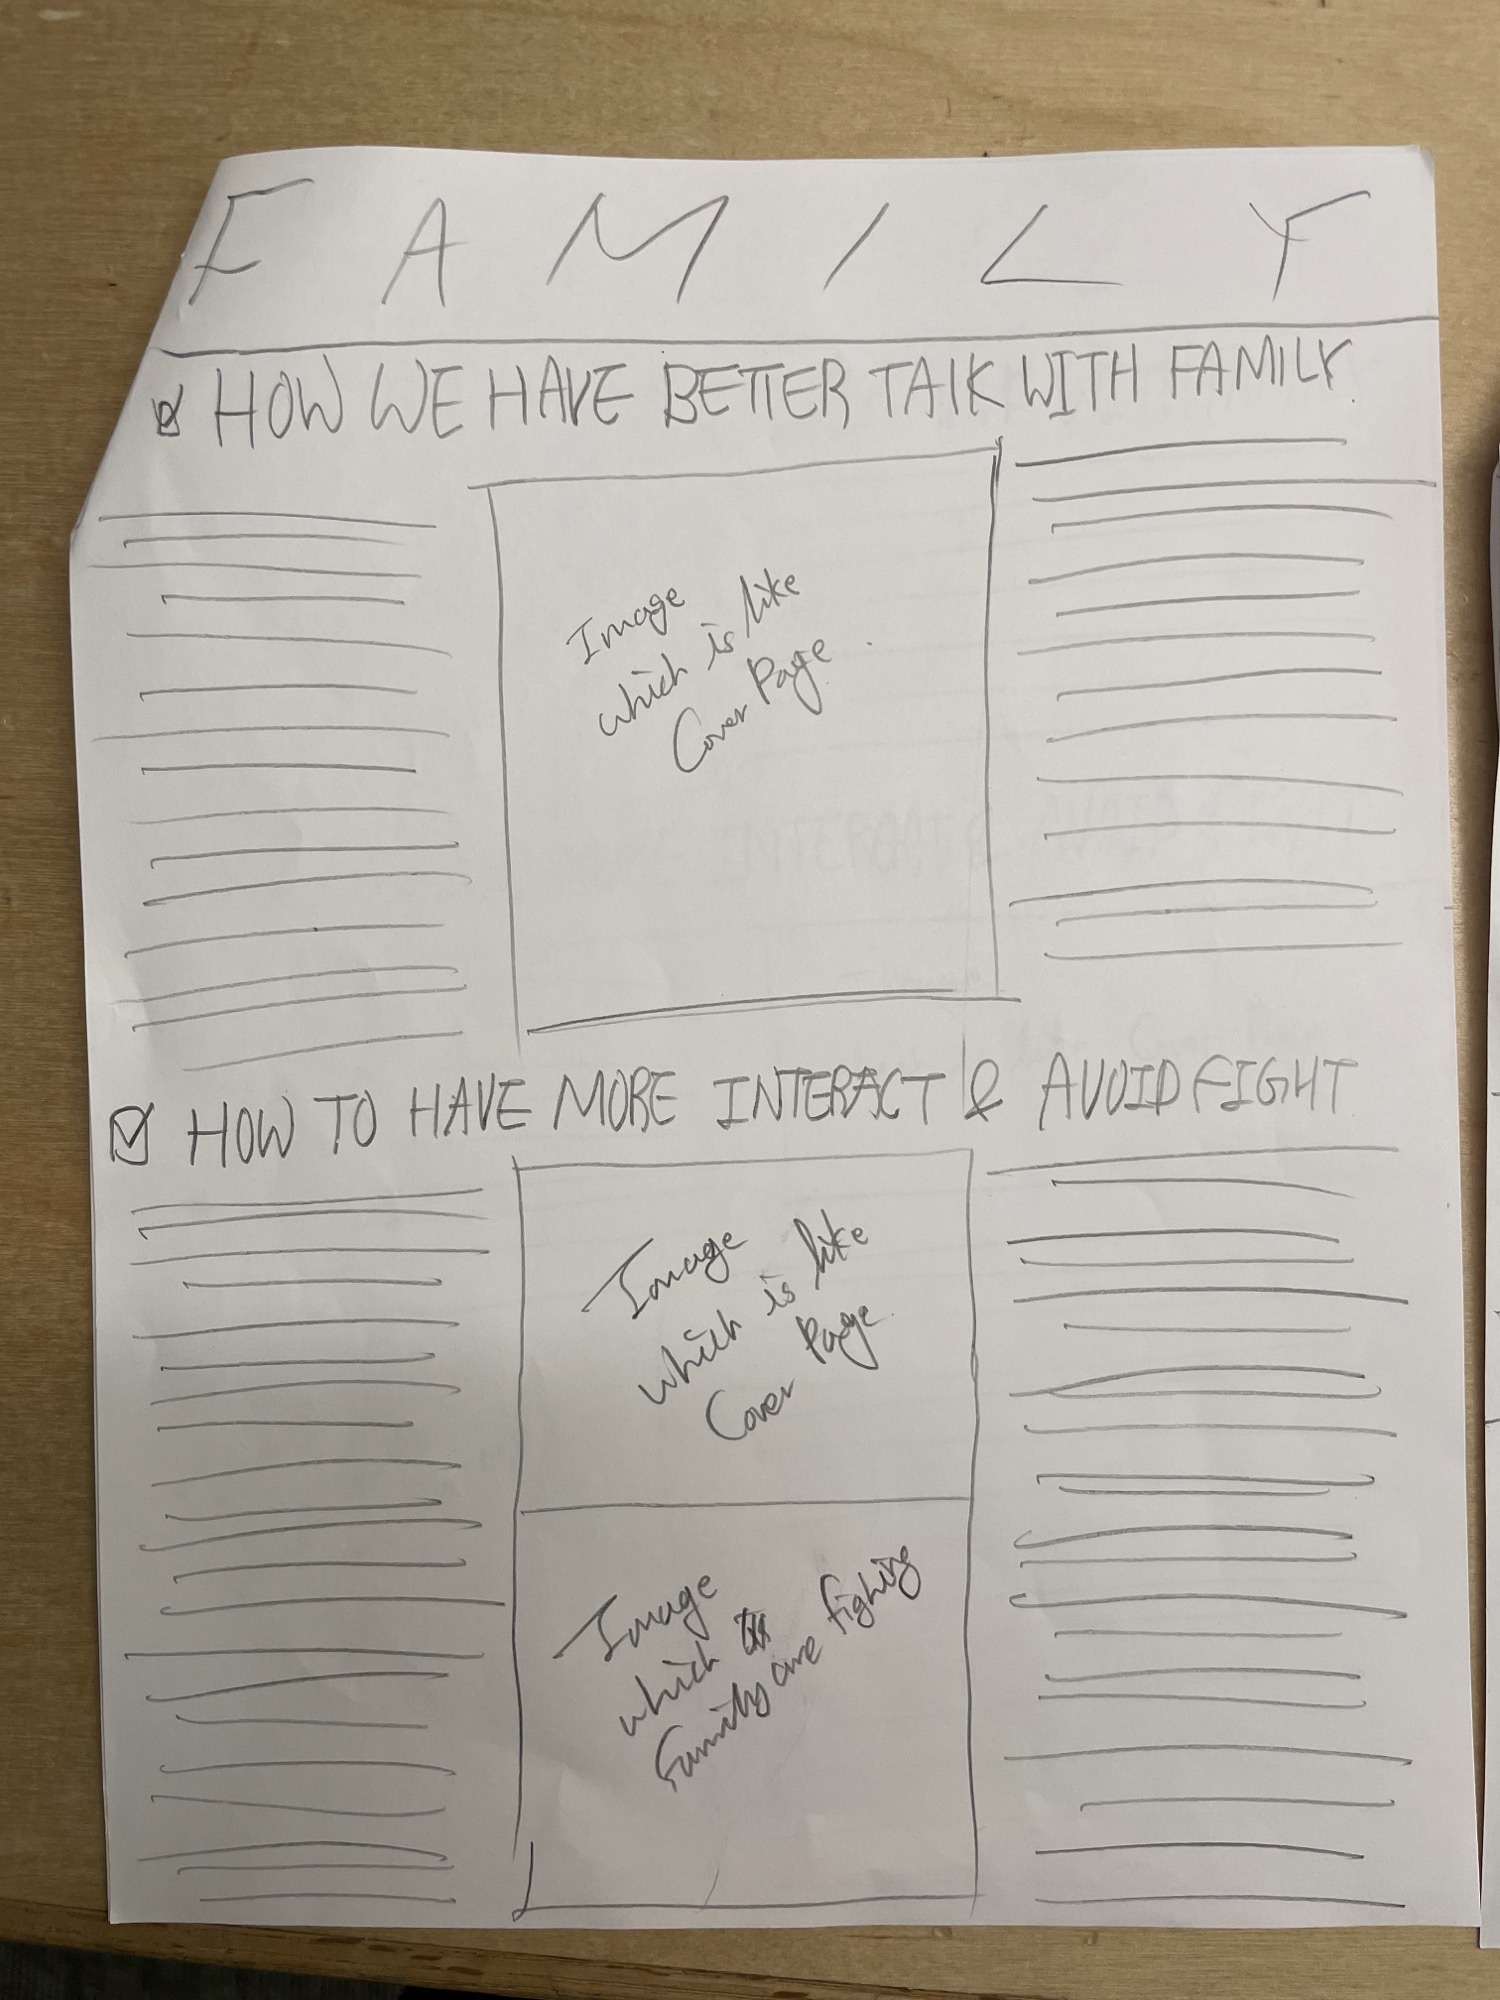 FAMILY
HOW WE HAVE BETTER TALK WITH FAMILY.
Image
which is like
Cover Page.
HOW TO HAVE MORE INTERACT & AVOID FIGHT
Image
which is like
Cover Page.
Image
which
Family are fighing